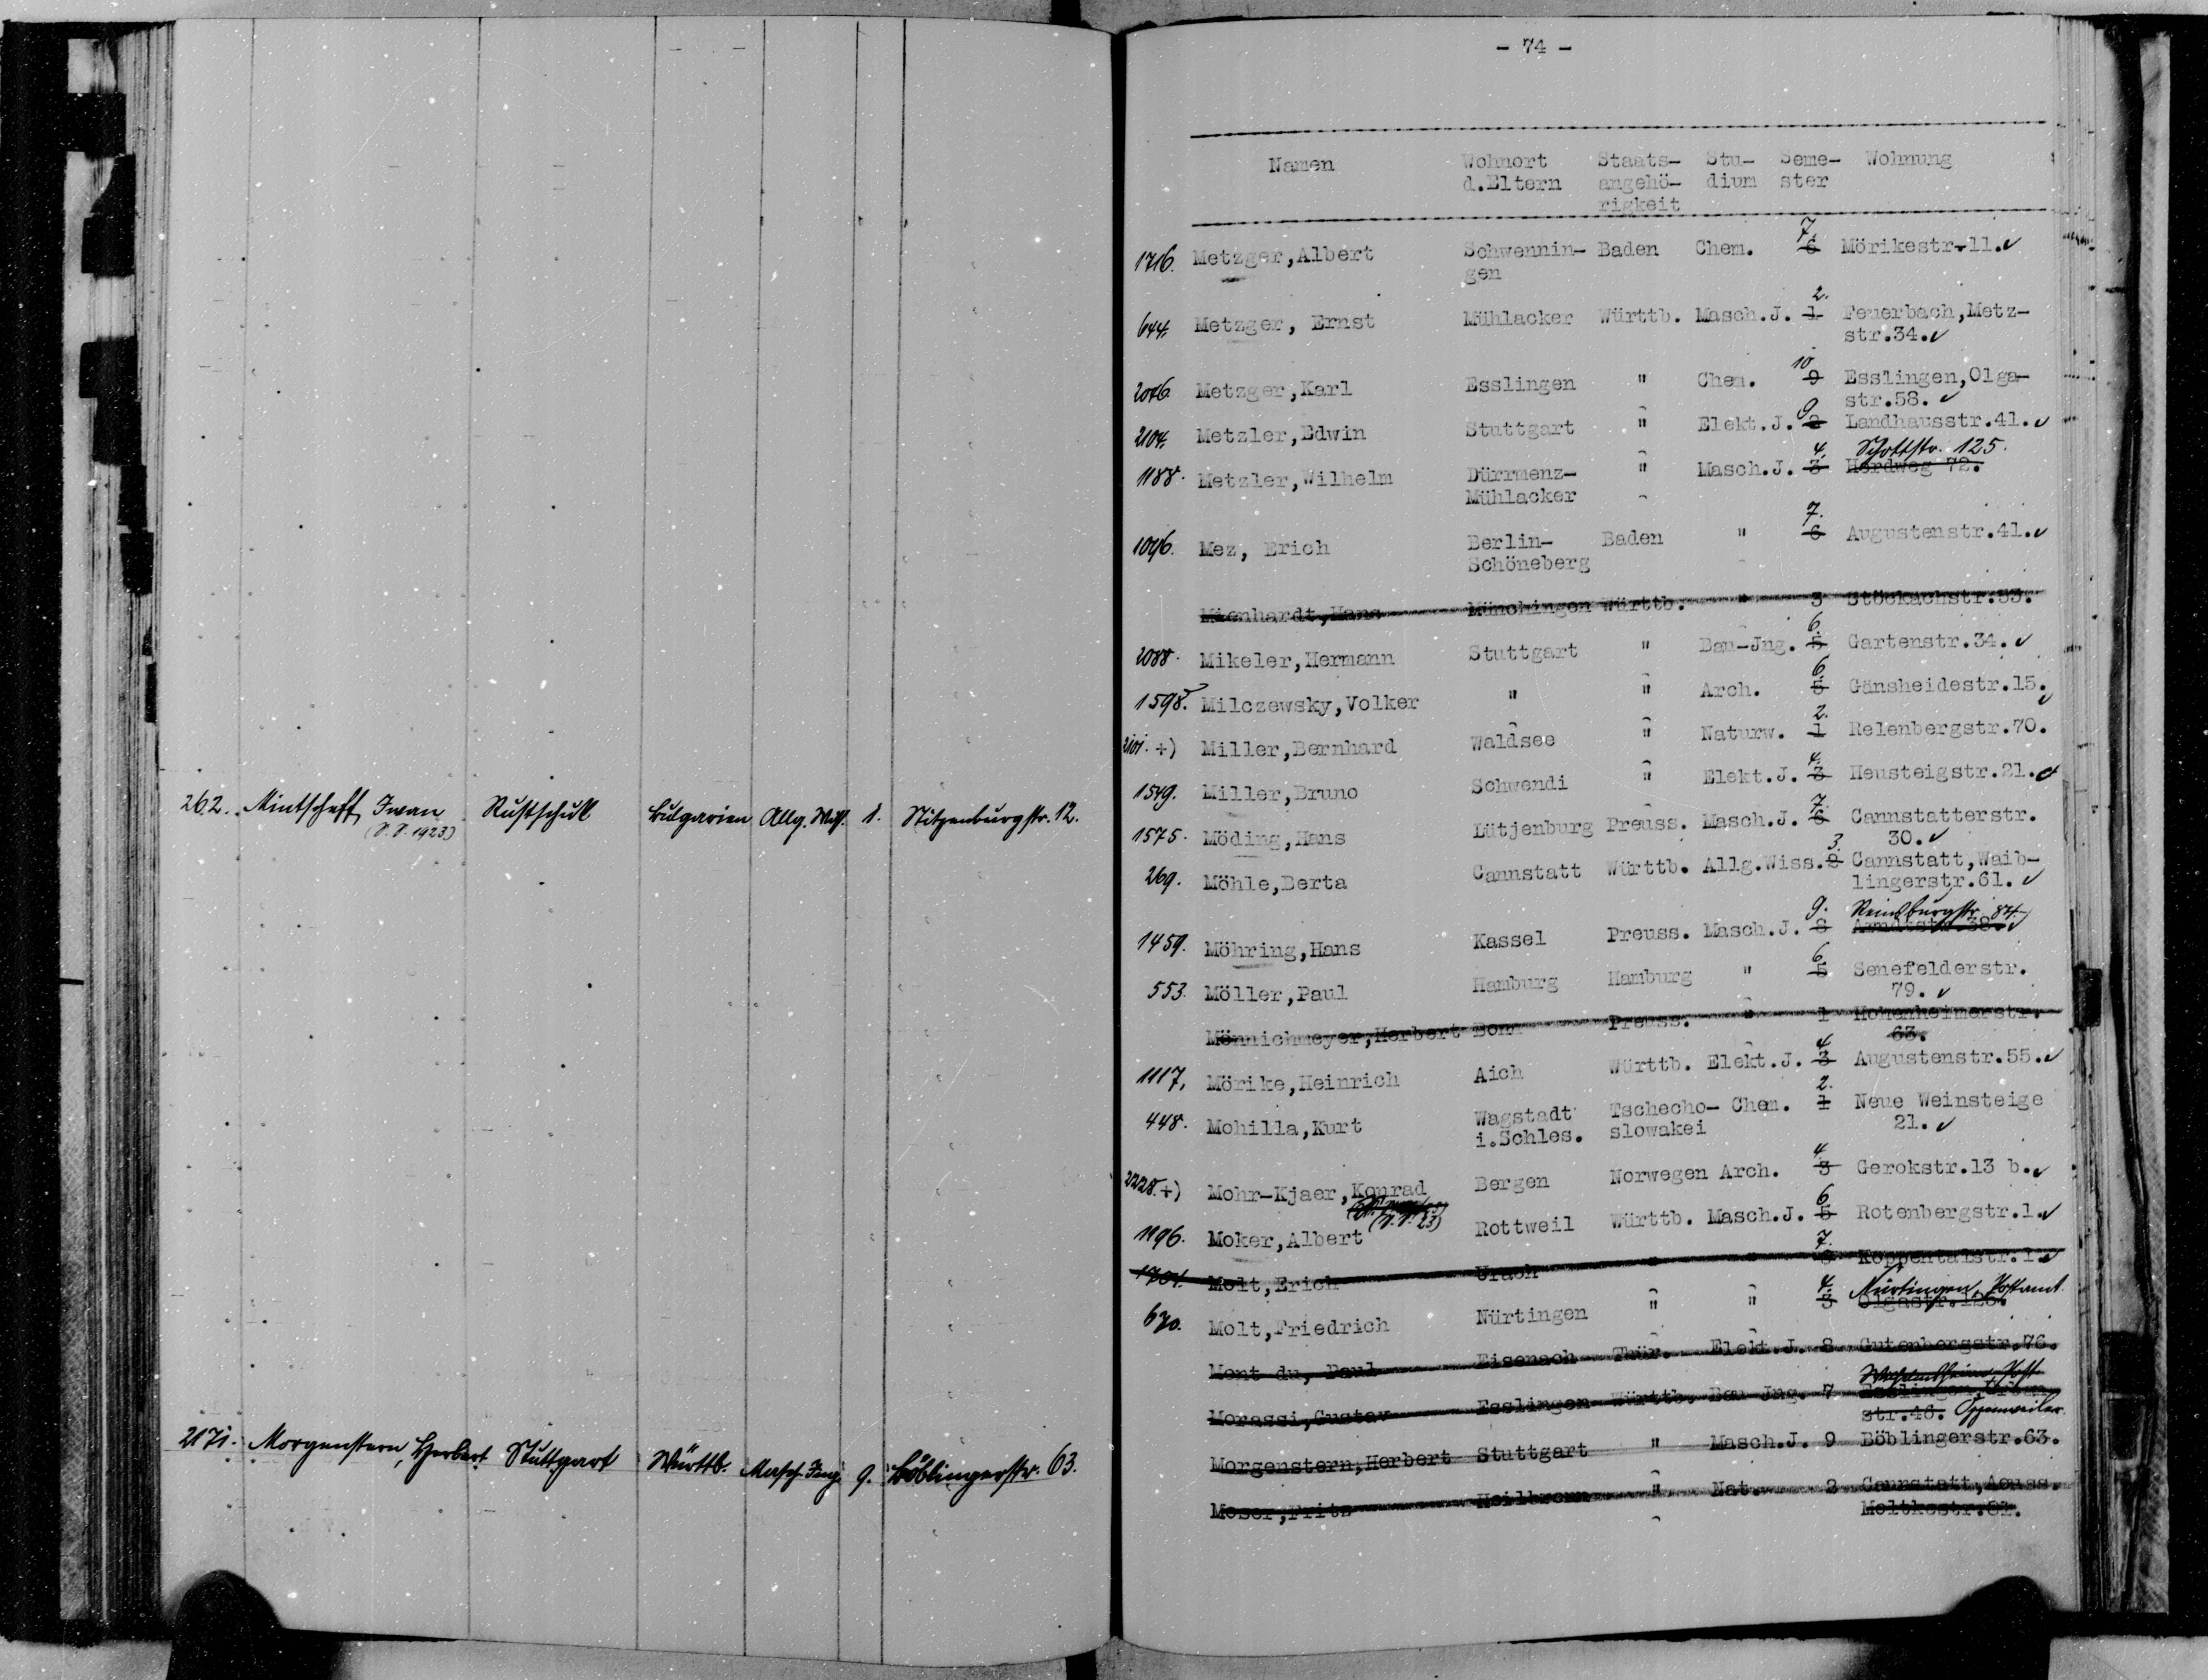 262. Mintscheff, Iwan Rustschuk Bulgarien Allg. Wiss. 1. Stitzenburgstr. 12.
(S.S. 1923)
2171. Morgenstern, Herbert Stuttgart Württb. Masch. Ing. 9. Böblingerstr. 63.
- 74 -
Namen Wohnort Staats- Stu- Seme- Wohnung
d.Eltern angehö- dium ster
rigkeit
7.
1716. Metzger,Albert Schwennin- Baden Chem. 6 Mörikestr.11.✓
gen
2.
644. Metzger, Ernst Mühlacker Württb. Masch.J. 1 Feuerbach,Metz-
str.34.✓
10
2046. Metzger,Karl Esslingen " Chem. 9 Esslingen,Olga-
str.58. ✓
9
2104. Metzler,Edwin Stuttgart " Elekt.J. Landhausstr.41.✓
4. Schottstr. 125.
1188. Metzler,Wilhelm Dürrmenz- " Masch.J. 3 Herdweg 72.
Mühlacker
7.
1046. Mez, Erich Berlin- Baden " 6 Augustenstr.41.✓
Schöneberg
Mienhardt,Hans Münchingen Württb. " 3 Stöckachstr.53.
6.
2088. Mikeler,Hermann Stuttgart " Bau-Jng. 5 Gartenstr.34. ✓
6.
1598. Milczewsky,Volker " " Arch. 5 Gänsheidestr.15.✓
2.
2101. +) Miller,Bernhard Waldsee " Naturw. 1 Relenbergstr.70.
4.
1549. Miller,Bruno Schwendi " Elekt.J. 3 Heusteigstr.21.✓
7.
1575. Möding,Hans Lütjenburg Preuss. Masch.J. 6 Cannstatterstr.
30.✓
3.
269. Möhle,Berta Cannstatt Württb. Allg.Wiss. 2 Cannstatt,Waib-
lingerstr.61. ✓
9. Reinsburgstr. 84.
1459. Möhring,Hans Kassel Preuss. Masch.J. 8 Arndtstr.38.✓
6.
553. Möller,Paul Hamburg Hamburg " 5 Senefelderstr.
79. ✓
Mönnichmeyer,Herbert Bonn Preuss. " 1 Hohenheimerstr.
63.
4
1117. Mörike,Heinrich Aich Württb. Elekt.J. 3 Augustenstr.55.✓
2.
448. Mohilla,Kurt Wagstadt Tschecho- Chem. 1 Neue Weinsteige
i.Schles. slowakei 21. ✓
4.
2228. +) Mohr-Kjaer,Konrad Bergen Norwegen Arch. 3 Gerokstr.13 b.✓
(S.S. 23)
6
1196. Moker,Albert Rottweil Württb. Masch.J. 5 Rotenbergstr.1.✓
7.
1701. Molt,Erich Urach " " 6 Koppentalstr.1.✓
4. Nürtingen, Postamt
670. Molt,Friedrich Nürtingen " " 3 Olgastr.126.
Mont du, Paul Eisenach Thür. Elekt.J. 8 Gutenbergstr.76.
Morassi,Gustav Esslingen Württb. Bau-Jng. 7 Esslingen,
str.46. Oppenweiler.
Morgenstern,Herbert Stuttgart " Masch.J. 9 Böblingerstr.63.
Moser,Fritz Heilbronn " Nat. 2 Cannstatt,Aeuss.
Moltkestr.81.